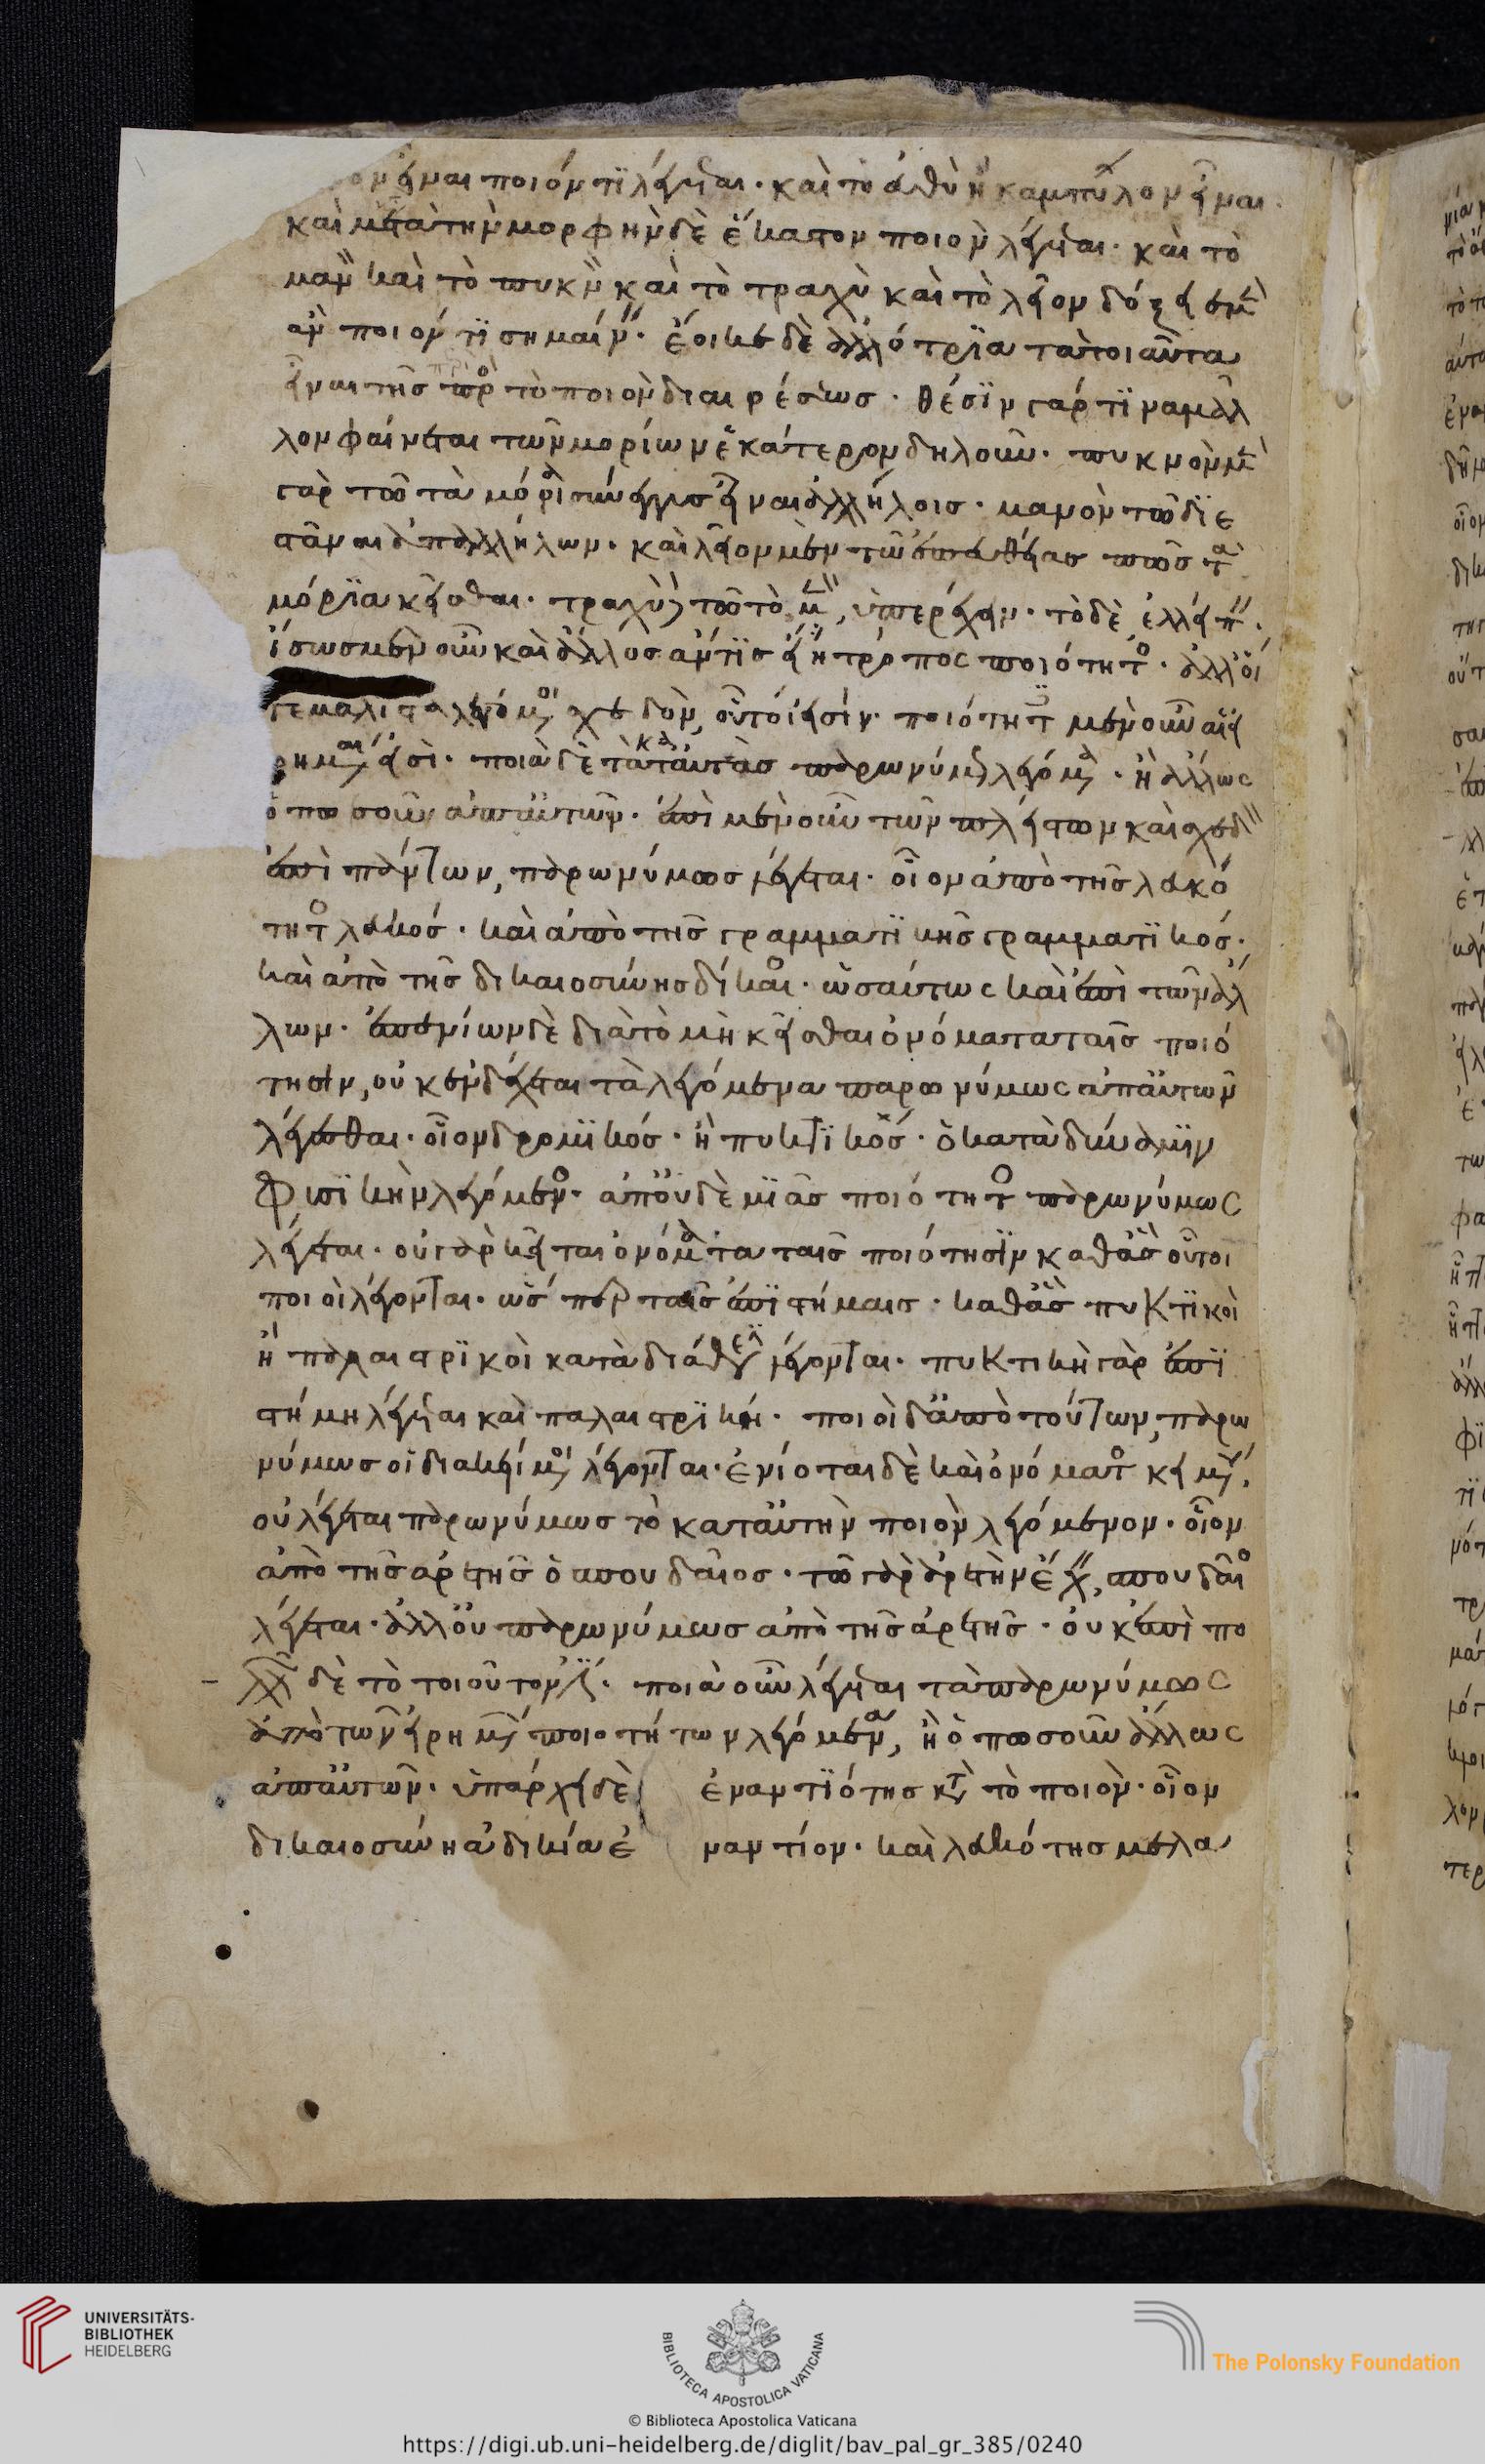 ον εἶναι ποιόν τι λέγεται· καὶ τὸ εὐθὺ ἢ καμπύλον εἶναι.
καὶ κατὰ τὴν μορφὴν δὲ ἕκαστον ποιὸν λέγεται· καὶ τὸ
μανὸν καὶ τὸ πυκνὸν καὶ τὸ τραχὺ καὶ τὸ λεῖον δόξειε μὲν
ἂν ποιόν τι σημαίνειν· ἔοικε δὲ ἀλλότρια τὰ τοιαῦτα
εἶναι τῆς πρὸς τὸ ποιὸν διαιρέσεως· θέσιν γάρ τινα μᾶλ
λον φαίνεται τῶν μορίων ἑκάτερον δηλοῦν· πυκνὸν μὲν
γὰρ τῶ τὰ μόρια σύνεγγυς εἶναι ἀλλήλοις· μανὸν τῶ διε
στάναι ἀπ' ἀλλήλων· καὶ λεῖον μὲν τῶ ἐπ' εὐθείας πως τὰ
μόρια κεῖσθαι· τραχὺ δὲ τῶ τὸ μὲν, ὑπερέχειν· τὸ δὲ, ἐλλείπειν.
ἴσως μὲν οὖν καὶ ἄλλος ἄν τις εἴη τρόπος ποιότητος· ἀλλ' οἵ
γε μάλιστα λεγόμενοι σχεδὸν, οὗτοί εἰσιν· ποιότητες μὲν οὖν αἱ εἰ
ρημέναι εἰσί· ποιὰ δὲ τὰ κατὰ ταύτας παρωνύμως λεγόμενα· ἢ ἄλλως
ὁπωσοῦν ἀπ' αὐτῶν· ἐπὶ μὲν οὖν τῶν πλείστων καὶ σχεδὸν
ἐπὶ πάντων, παρωνύμως λέγεται· οἷον ἀπὸ τῆς λευκό
τητος λευκός· καὶ ἀπὸ τῆς γραμματικῆς γραμματικός·
καὶ ἀπὸ τῆς δικαιοσύνης δίκαιος· ὡσαύτως καὶ ἐπὶ τῶν ἄλ
λων· ἐπ' ἐνίων δὲ διὰ τὸ μὴ κεῖσθαι ὀνόματα ταῖς ποιό
τησιν, οὐκ ἐνδέχεται τὰ λεγόμενα παρωνύμως ἀπ' αὐτῶν
λέγεσθαι· οἷον δρομικός· ἢ πυκτικός· ὁ κατὰ δύναμιν
φυσικὴν λεγόμενος· ἀπ' οὐδὲ μιᾶς ποιότητος παρωνύμως
λέγεται· οὐ γὰρ κεῖται ὀνόματα ταῖς ποιότησιν καθ' ἃς οὗτοι
ποιοὶ λέγονται· ὥσπερ ταῖς ἐπιστήμαις· καθ' ἃς πυκτικοὶ
ἢ παλαιστρικοὶ κατὰ διάθεσιν λέγονται· πυκτικὴ γὰρ ἐπι
στήμη λέγεται καὶ παλαιστρική· ποιοὶ δ' ἀπὸ τούτων, παρω
νύμως οἱ διακείμενοι λέγονται· ἐνίοτε δὲ καὶ ὀνόματος κειμένου,
οὐ λέγεται παρωνύμως τὸ κατ' αὐτὴν ποιὸν λεγόμενον· οἷον
ἀπὸ τῆς ἀρετῆς ὁ σπουδαῖος· τῶ γὰρ ἀρετὴν ἔχειν, σπουδαῖος
λέγεται· ἀλλ' οὐ παρωνύμως ἀπὸ τῆς ἀρετῆς· οὐκ ἐπὶ πο
λλῶν δὲ τὸ τοιοῦτόν ἐστι· ποιὰ οὖν λέγεται τὰ παρωνύμως
ἀπὸ τῶν εἰρημένων ποιοτήτων λεγόμενα, ἢ ὁπωσοῦν ἄλλως
ἀπ' αὐτῶν· ὑπάρχει δὲ ἐναντιότης κατὰ τὸ ποιόν· οἷον
δικαιοσύνη ἀδικία ἐναντίον· καὶ λευκότης μελα
UNIVERSITÄTS-
BIBLIOTHEK
HEIDELBERG
BIBLIOTECA APOSTOLICA VATICANA
The Polonsky Foundation
© Biblioteca Apostolica Vaticana
https://digi.ub.uni-heidelberg.de/diglit/bav_pal_gr_385/0240